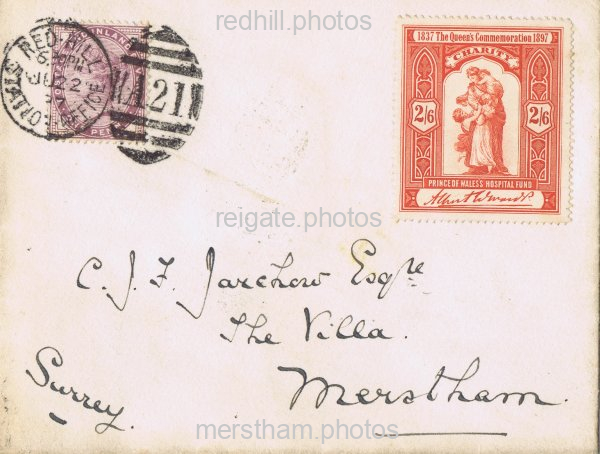 redhill.photos
RED HILL
STATION OFFICE
JU 2
A21
INLAND
1837 The Queen's Commemoration 1897
CHARITY
2/6 2/6
PRINCE OF WALES'S HOSPITAL FUND
Albert Edward P.
reigate.photos
C. J. F. Jarchow Esqre
The Villa.
Merstham.
Surrey.
merstham.photos